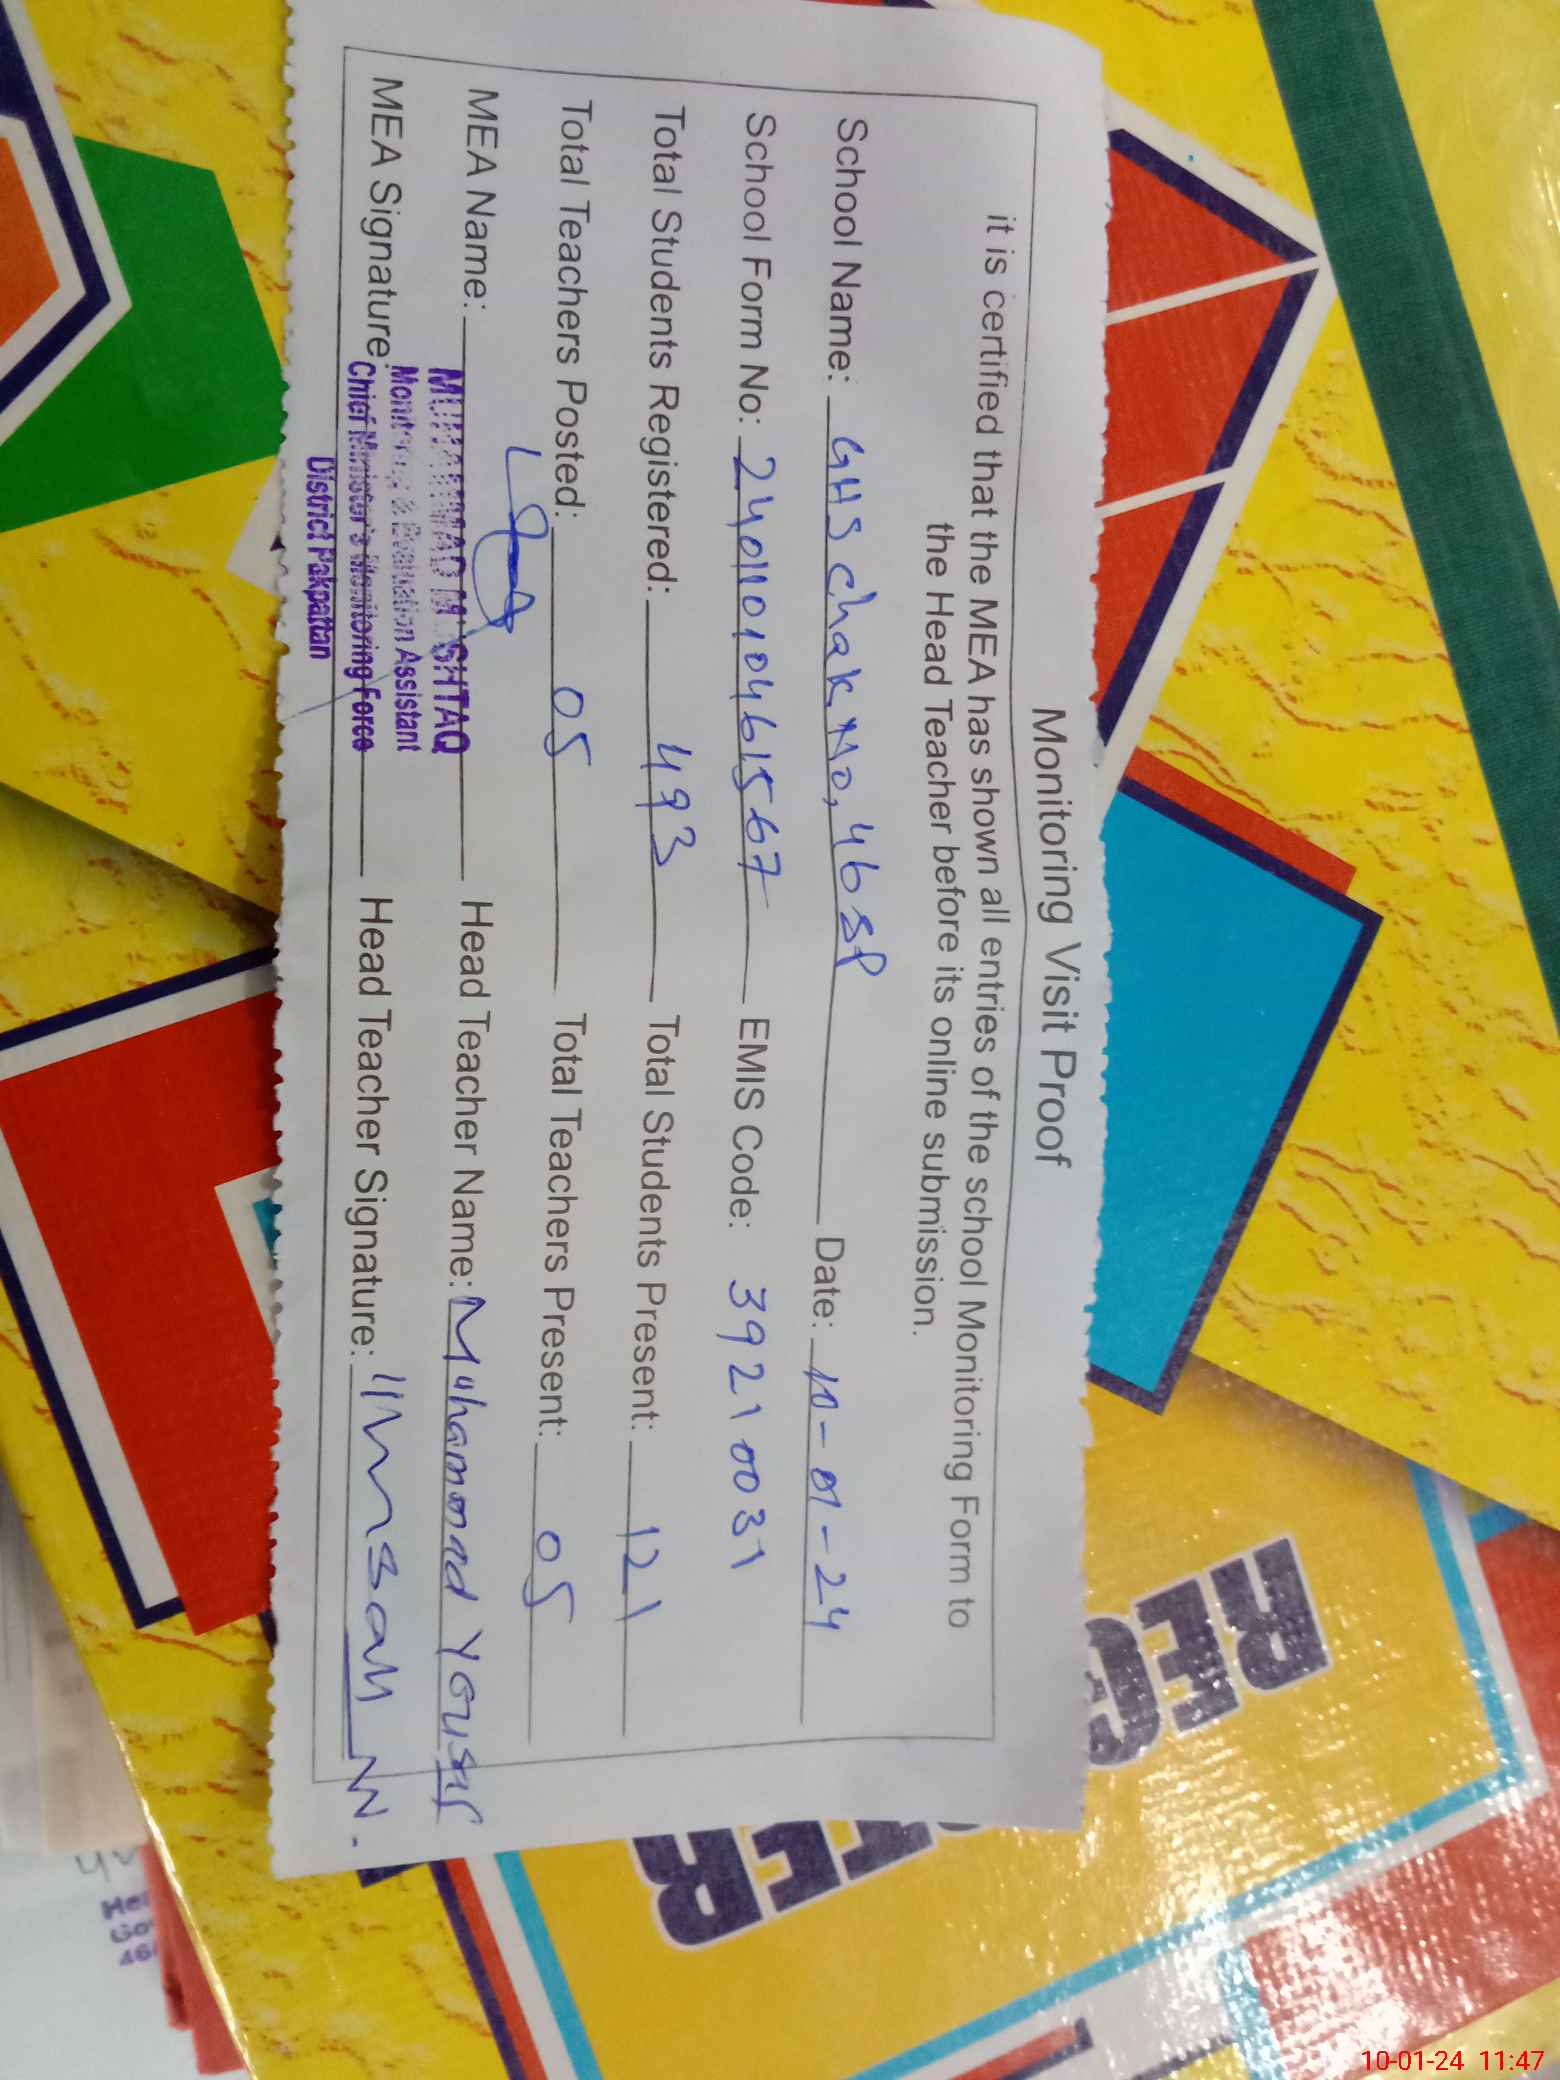 Monitoring Visit Proof
it is certified that the MEA has shown all entries of the school Monitoring Form to
the Head Teacher before its online submission.
School Name: GHS chak No, 46 SP Date: 10-01-24
School Form No: 24011010461567 EMIS Code: 39210031
Total Students Registered: 493 Total Students Present: 121
Total Teachers Posted: 05 Total Teachers Present: 05
MEA Name: MUHAMMAD MUSHTAQ Head Teacher Name: Muhammad Yousuf
Monitoring & Evaluation Assistant
MEA Signature: Chief Minister's Monitoring Force Head Teacher Signature:
District Pakpattan
REGISTER
46
10-01-24 11:47